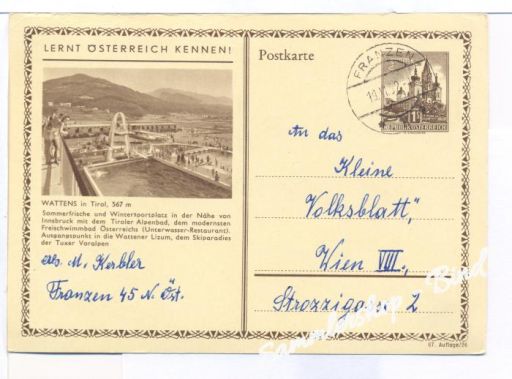 LERNT ÖSTERREICH KENNEN!
WATTENS in Tirol, 567 m
Sommerfrische und Wintersportplatz in der Nähe von
Innsbruck mit dem Tiroler Alpenbad, dem modernsten
Freischwimmbad Österreichs (Unterwasser-Restaurant).
Ausgangspunkt in die Wattener Lizum, dem Skiparadies
der Tuxer Voralpen
abs. M. Kerbler
Franzen 45 N. Öst.
Postkarte
FRANZEN
REPUBLIK ÖSTERREICH
An das
Kleine
Volksblatt",
Wien VIII.,
Strozzigasse 2
Sammlershop Bindl